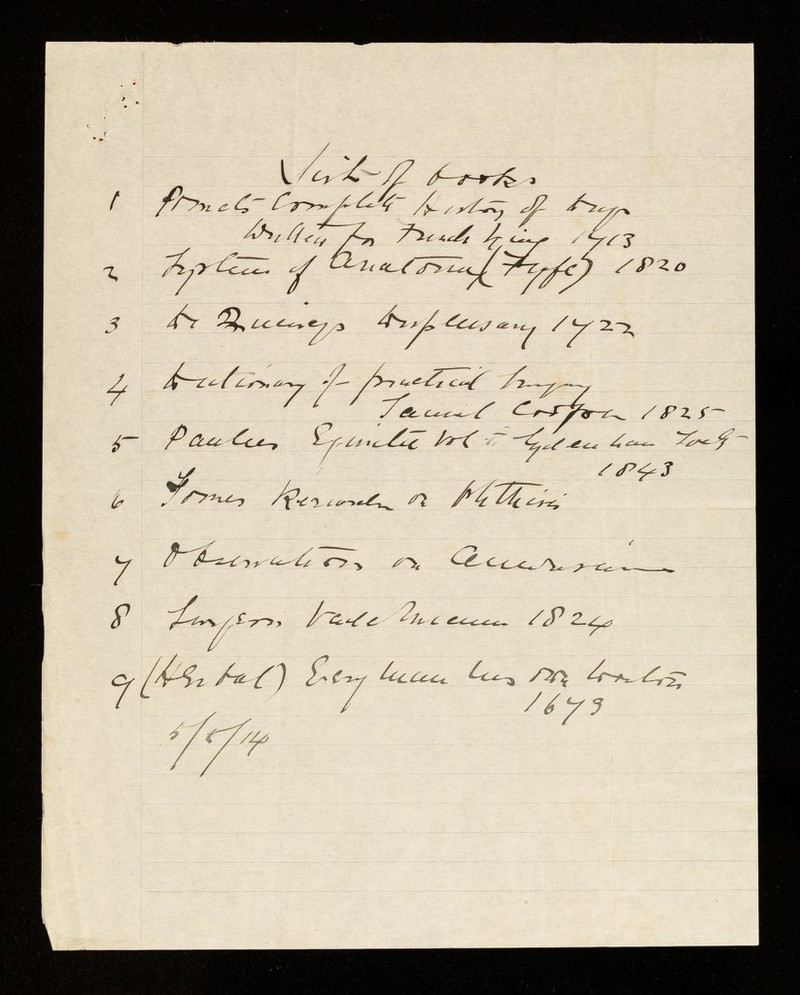 List of Books
1 Pomets Complete History of Drugs
Written for French King 1713
2 System of Anatomy (Fyfe) 1820
3 De Quincys Dispensary 1722
4 Dictionary of practical Surgery
Samuel Cooper 1825
5 Paulus Eginetee Vol Sydenham Socty
1843
6 Researches on Phthisis
7 Observations on Aneurism
8 Surgeons Vade Mecum 1824
9 (Herbal) Every man his own Doctor
1673
5/5/14